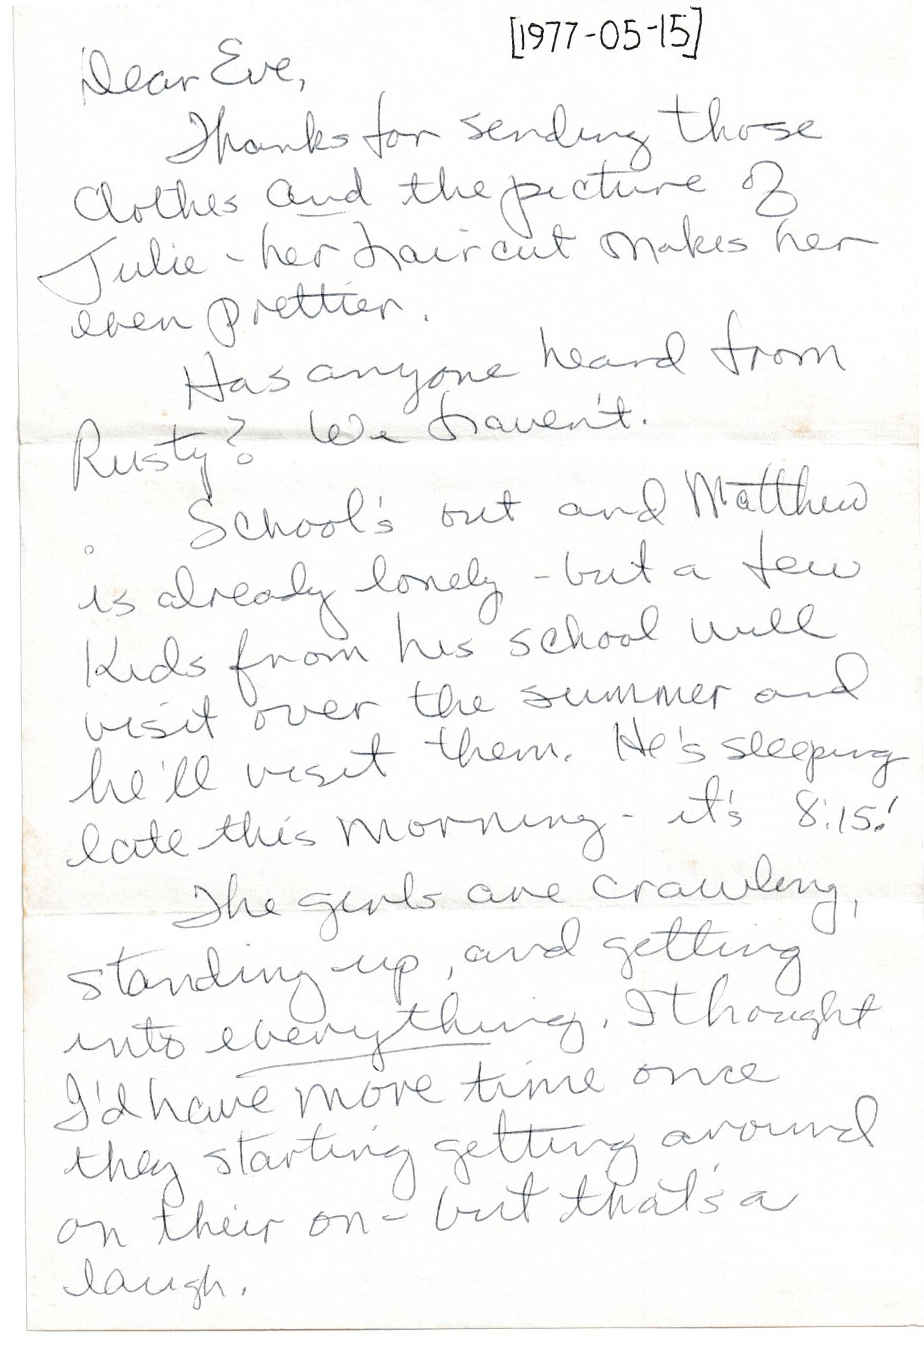 [1977-05-15]
Dear Eve,
Thanks for sending those
clothes and the picture of
Julie - her haircut makes her
even prettier.
Has anyone heard from
Rusty? We haven't.
School's out and Matthew
is already lonely - but a few
kids from his school will
visit over the summer and
he'll visit them. He's sleeping
late this morning - it's 8:15!
The girls are crawling,
standing up, and getting
into everything. I thought
I'd have more time once
they starting getting around
on their on - but that's a
laugh.